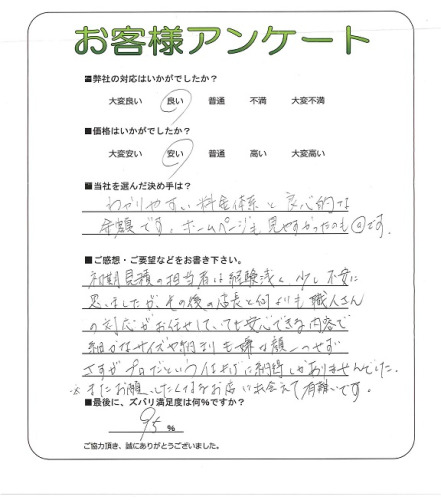 お客様アンケート
■弊社の対応はいかがでしたか?
大変良い 良い 普通 不満 大変不満
■価格はいかがでしたか?
大変安い 安い 普通 高い 大変高い
■当社を選んだ決め手は?
わかりやすい料金体系と良心的な
金額です。ホームページも見やすかったのも◎です。
■ご感想・ご要望などをお書き下さい。
初期見積の担当者は経験浅く、少し不安に
思いましたが、その後の店長と何よりも職人さん
の対応がお任せしていても安心できる内容で
細かなサイズや納まりも嫌な顔一つせず
さすがプロだという仕上げに納得しかありませんでした。
※またお願いしたくなるお店に出会えて有難いです。
■最後に、ズバリ満足度は何%ですか?
95 %
ご協力頂き、誠にありがとうございました。